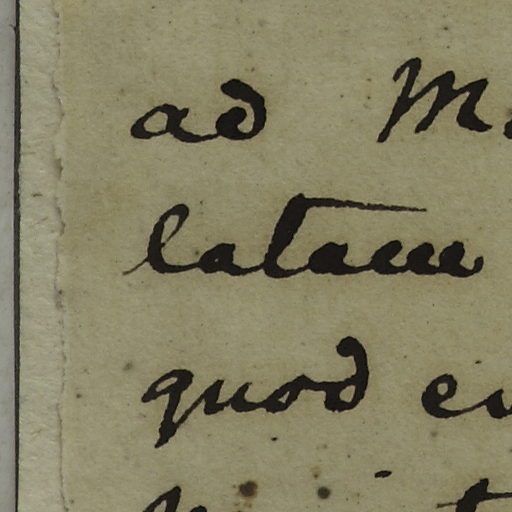 ad M
latam
quod e